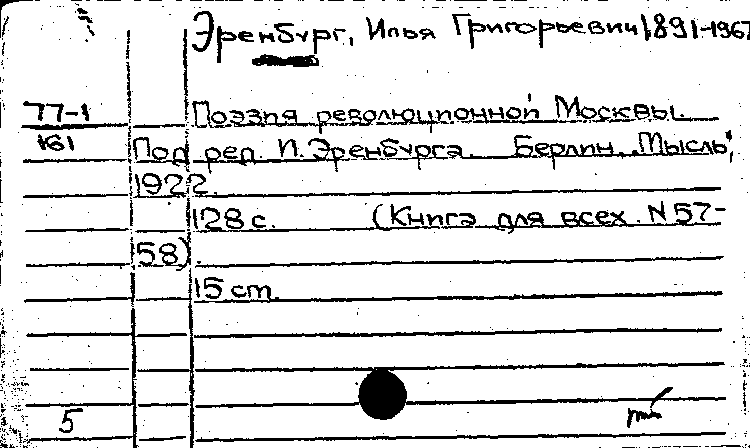 Эренбург, Илья Григорьевич 1891-1967
77-1
161
Поэзия революционной Москвы.
Под ред. И. Эренбурга. Берлин, "Мысль",
1922.
128 с. (Книга для всех. N 57-
58).
15 cm.
5